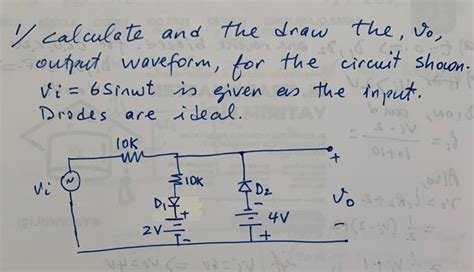 1/ calculate and the draw the, v₀,
output waveform, for the circuit shown.
vi = 6 sinωt is given as the input.
Diodes are ideal.
10K
+
10K
D₂
Vi
~
D₁
+
-
V₀
2V
-
4V
+
-